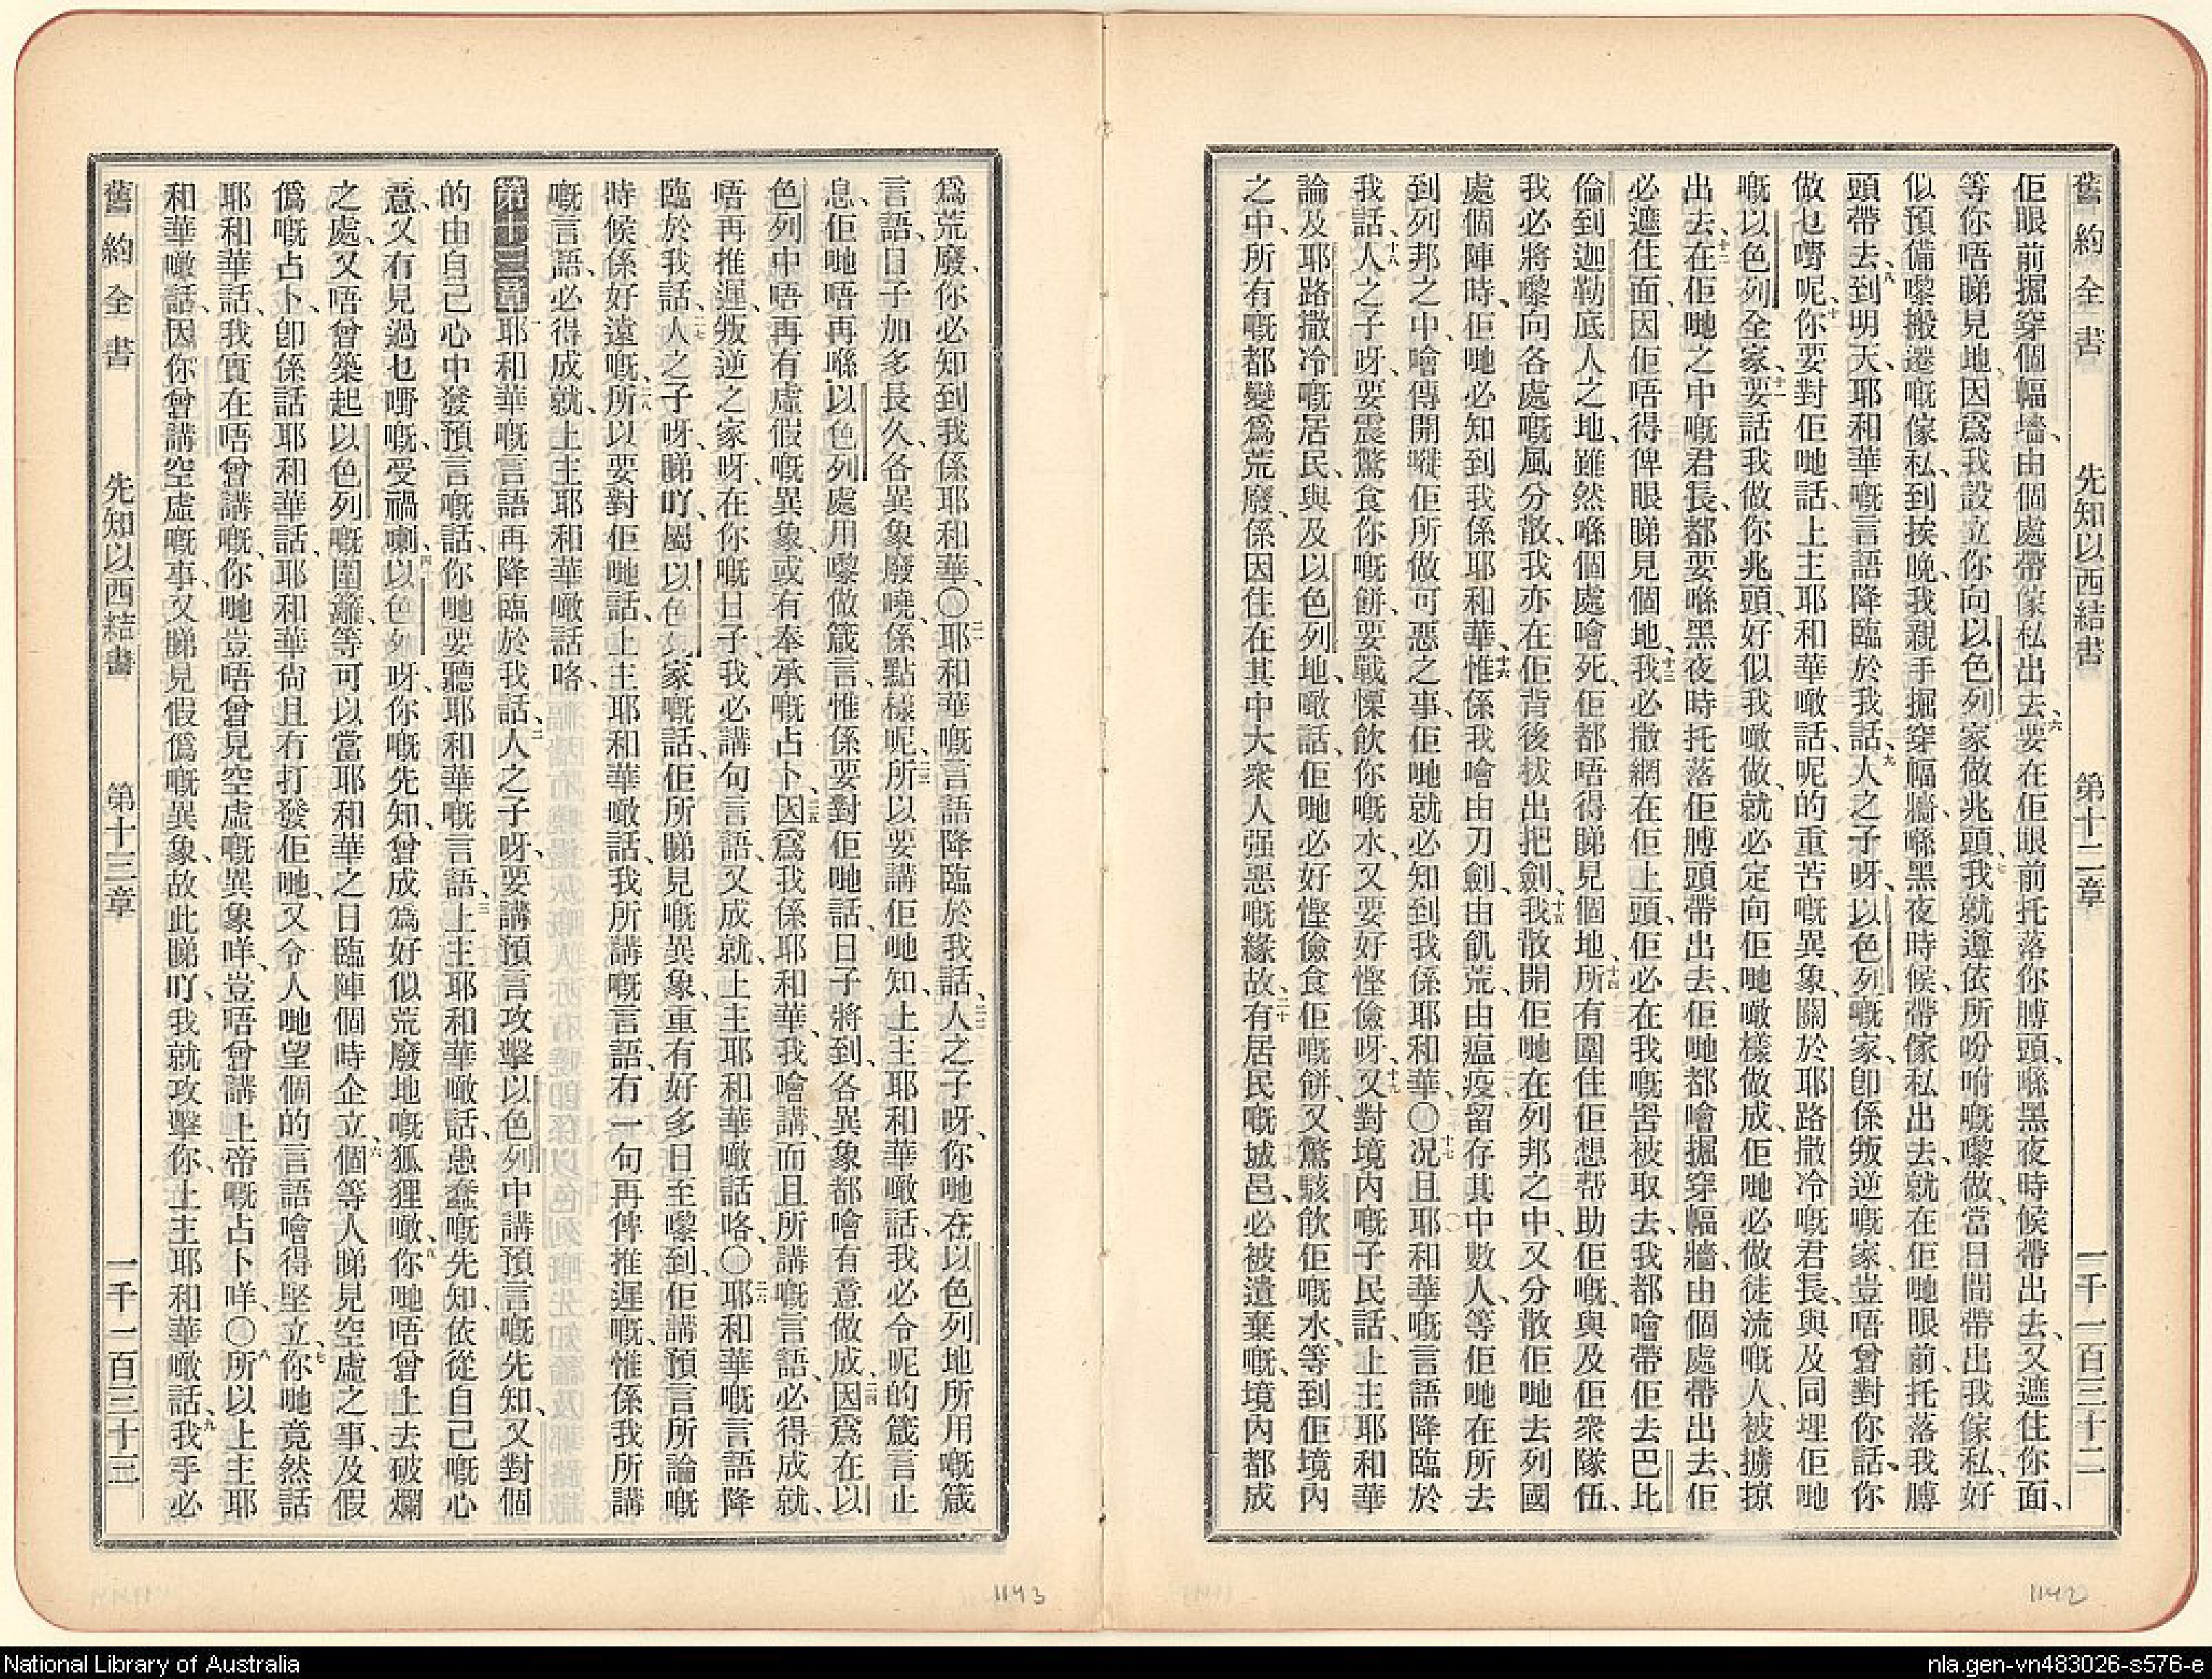 舊約全書 先知以西結書 第十二章 一千一百三十二
佢眼前掘穿個幅墻、由個處帶傢私出去、六要在佢眼前托落你膊頭、喺黑夜時候帶出去、又遮住你面、
等你唔睇見地、因爲我設立你向以色列家做兆頭、七我就遵依所吩咐嘅嚟做、當日間帶出我傢私、好
似預備嚟搬遷嘅傢私、到挨晚、我親手掘穿幅牆、喺黑夜時候、帶傢私出去、就在佢哋眼前、托落我膊
頭帶去、八到明天、耶和華嘅言語降臨於我話、九人之子呀、以色列嘅家、卽係叛逆嘅家、豈唔曾對你話、你
做乜嘢呢、十你要對佢哋話、上主耶和華噉話、呢的重苦嘅異象、關於耶路撒冷嘅君長、與及同埋佢哋
嘅以色列全家、十一要話我做你兆頭、好似我噉做、就必定向佢哋噉樣做成、佢哋必做徒流嘅人、被擄掠
出去、十二在佢哋之中嘅君長、都要喺黑夜時托落佢膊頭帶出去、佢哋都噲掘穿幅牆、由個處帶出去、佢
必遮住面、因佢唔得俾眼睇見個地、十三我必撒網在佢上頭、佢必在我嘅罟被取去、我都噲帶佢去巴比
倫、到迦勒底人之地、雖然喺個處噲死、佢都唔得睇見個地、十四所有圍住佢想帮助佢嘅、與及佢衆隊伍、
我必將嚟向各處嘅風分散、我亦在佢背後拔出把劍、十五我散開佢哋在列邦之中、又分散佢哋去列國
處個陣時、佢哋必知到我係耶和華、十六惟係我噲由刀劍、由飢荒、由瘟疫、留存其中數人、等佢哋在所去
到列邦之中、噲傳開嘥佢所做可惡之事、佢哋就必知到我係耶和華、〇十七况且耶和華嘅言語降臨於
我話、十八人之子呀、要震驚食你嘅餅、要戰慄飲你嘅水、又要好慳儉呀、十九又對境內嘅子民話、上主耶和華
論及耶路撒冷嘅居民、與及以色列地、噉話、佢哋必好慳儉食佢嘅餅、又驚駭飲佢嘅水、等到佢境內
之中、所有嘅都變爲荒廢、係因住在其中大衆人强惡嘅緣故、二十有居民嘅城邑、必被遺棄嘅、境內都成
爲荒廢、你必知到我係耶和華、〇二一耶和華嘅言語降臨於我話、二二人之子呀、你哋在以色列地所用嘅箴
言語、日子加多長久、各異象廢曉、係點樣呢、二三所以要講佢哋知、上主耶和華噉話、我必令呢的箴言止
息、佢哋唔再喺以色列處用嚟做箴言、惟係要對佢哋話、日子將到、各異象都噲有意做成、二四因爲在以
色列中唔再有虛假嘅異象、或有奉承嘅占卜、二五因爲我係耶和華、我噲講、而且所講嘅言語、必得成就、
唔再推遲、叛逆之家呀、在你嘅日子、我必講句言語、又成就、上主耶和華噉話咯、〇二六耶和華嘅言語降
臨於我話、二七人之子呀、睇吖、屬以色列家嘅話、佢所睇見嘅異象、重有好多日至嚟到、佢講預言所論嘅
時候係好遠嘅、二八所以要對佢哋話、上主耶和華噉話、我所講嘅言語、冇一句再俾推遲嘅、惟係我所講
嘅言語、必得成就、上主耶和華噉話咯、
第十三章 一耶和華嘅言語再降臨於我話、二人之子呀、要講預言攻擊以色列中講預言嘅先知、又對個
的由自己心中發預言嘅話、你哋要聽耶和華嘅言語、三上主耶和華噉話、愚蠢嘅先知、依從自己嘅心
意、又冇見過乜嘢嘅、受禍喇、四以色列呀、你嘅先知、曾成爲好似荒廢地嘅狐狸噉、五你哋唔曾上去破爛
之處、又唔曾築起以色列嘅圍籬、等可以當耶和華之日臨陣個時企立、六個等人睇見空虛之事、及假
僞嘅占卜、卽係話耶和華話、耶和華尙且冇打發佢哋、又令人哋望個的言語噲得堅立、七你哋竟然話
耶和華話、我實在唔曾講嘅、你哋豈唔曾見空虛嘅異象咩、豈唔曾講上帝嘅占卜咩、〇八所以上主耶
和華噉話、因你曾講空虛嘅事、又睇見假僞嘅異象、故此睇吖、我就攻擊你、上主耶和華噉話、九我手必
舊約全書 先知以西結書 第十三章 一千一百三十三
1143
1142
National Library of Australia
nla.gen-vn483026-s576-e